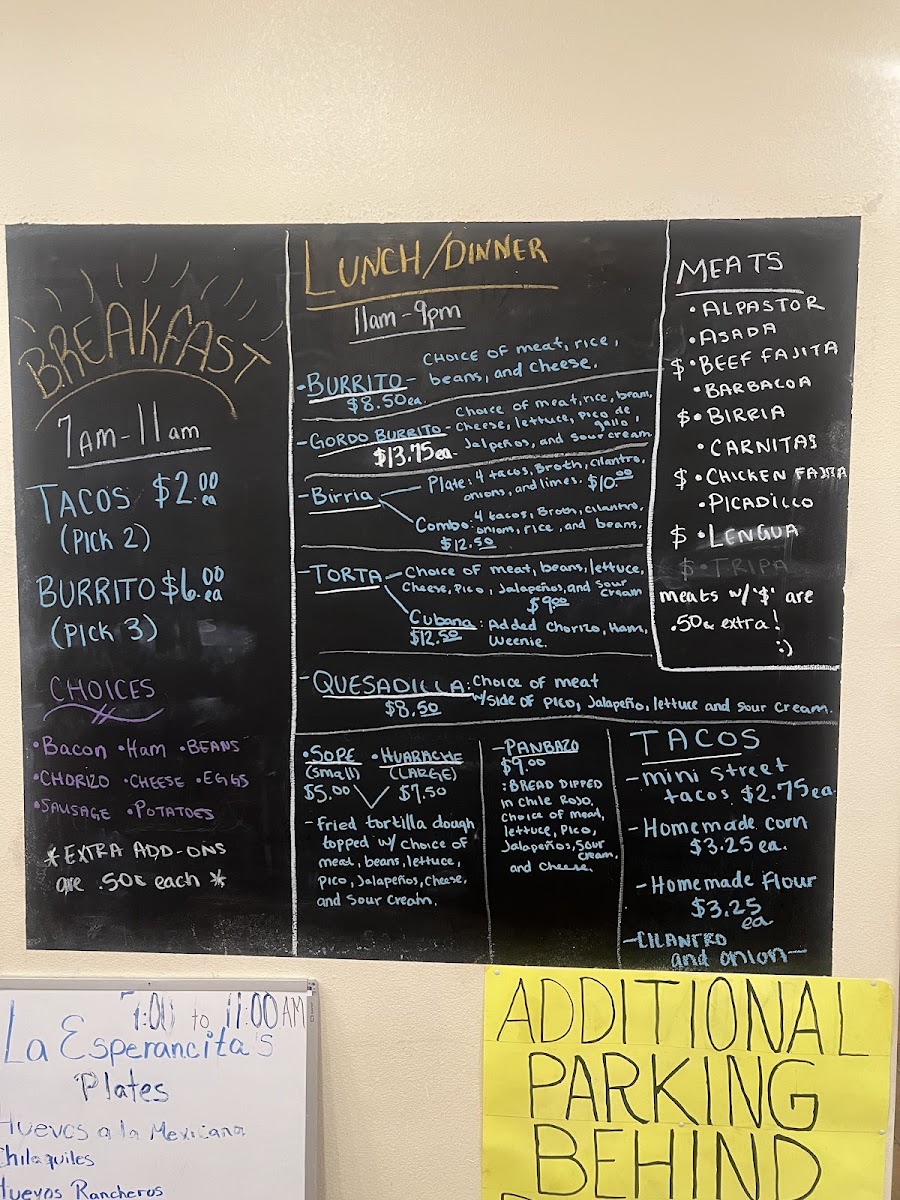 BREAKFAST
7AM-11am
TACOS $2.00 ea
(PICK 2)
BURRITO $6.00 ea
(PICK 3)
CHOICES
•Bacon •Ham •BEANS
•CHORIZO •CHEESE •EGGS
•SAUSAGE •POTATOES
*EXTRA ADD-ONS
are .50¢ each *
LUNCH/DINNER
11am-9pm
•BURRITO- CHOICE OF meat, rice,
beans, and cheese.
$8.50 ea.
-GORDO BURRITO- Choice of meat, rice, bean,
Cheese, lettuce, Pico de
gallo,
Jalpeños, and sour cream
$13.75 ea.
-Birria
Plate: 4 tacos, Broth, cilantro,
onions, and limes. $10.00
Combo: 4 tacos, Broth, cilantro,
onion, rice, and beans.
$12.50
-TORTA- Choice of meat, beans, lettuce,
Cheese, Pico, Jalapeños, and sour
cream
$9.00
Cubana: Added Chorizo, Ham,
$12.50 Weenie.
-QUESADILLA: Choice of meat
$8.50 w/side of Pico, Jalapeño, lettuce and sour cream.
•SOPE •HUARACHE
(small) (LARGE)
$5.00 $7.50
-Fried tortilla dough
topped w/ choice of
meat, beans, lettuce,
Pico, Jalapeños, cheese,
and sour cream.
-PANBAZO
$9.00
:BREAD DIPPED
in Chile ROJO,
choice of meat,
lettuce, Pico,
Jalapeños, sour
cream,
and cheese.
TACOS
-mini street
tacos $2.75 ea.
-Homemade corn
$3.25 ea.
-Homemade Flour
$3.25
ea
-CILANTRO
and onion-
MEATS
•ALPASTOR
•ASADA
$•BEEF FAJITA
•BARBACOA
$•BIRRIA
•CARNITAS
$•CHICKEN FAJITA
•PICADILLO
$•LENGUA
$•TRIPA
meats w/'$' are
.50¢ extra!
:)
7:00 to 11:00AM
La Esperancita's
Plates
Huevos a la Mexicana
Chilaquiles
Huevos Rancheros
ADDITIONAL
PARKING
BEHIND